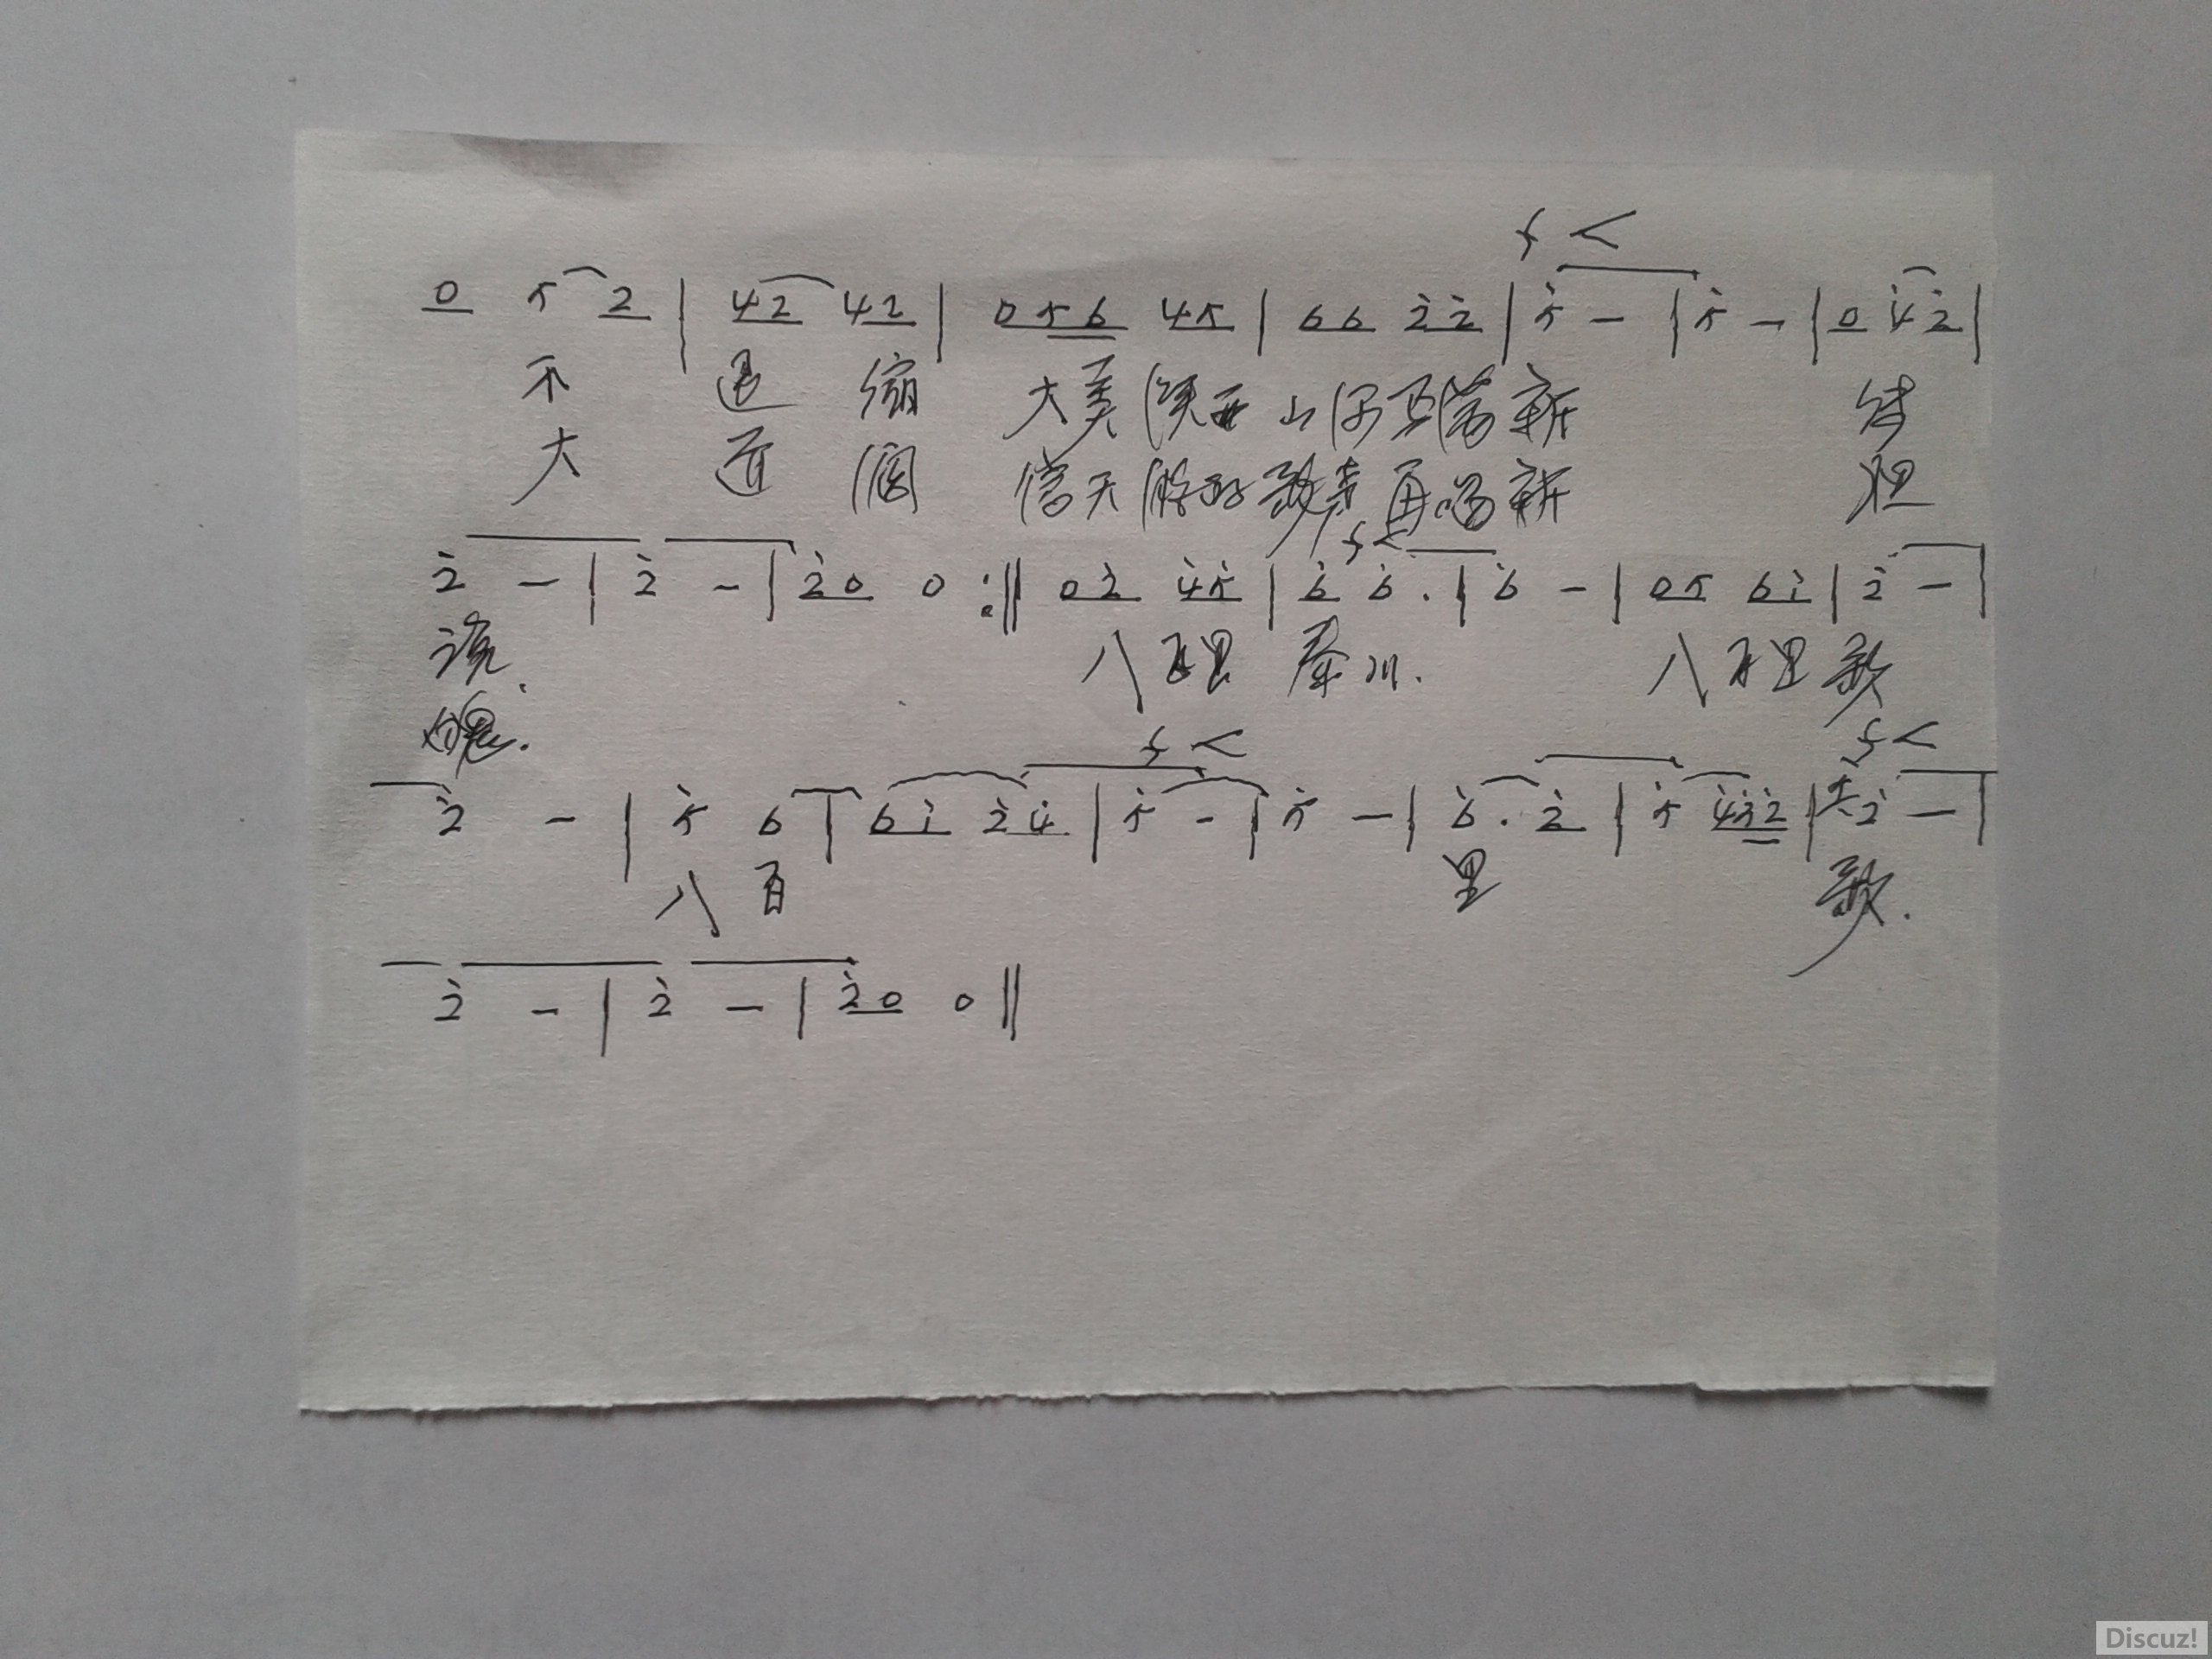 f <
0 5 2 | 42 42 | 056 45 | 66 2̇2̇ | 5̇ - | 5̇ - | 0 4̇2̇ |
不 退 缩 大美陕西山河再蒂新
大 道 阔 信天游的歌声再唱新 胆
f <
2̇ - | 2̇ - | 2̇0 0 :‖ 02̇ 4̇5̇ | 6̇ 6̇ . | 6̇ - | 05 61̇ | 2̇ - |
八百里 秦川. 八百里歌
魄.
f < f <
2̇ - | 5̇ 6 | 61̇ 2̇4̇ | 5̇ - | 5̇ - | 6̇ . 2̇ | 5̇ 4̇3̇2̇ | 2̇ - |
八 百 里 歌.
2̇ - | 2̇ - | 2̇0 0 ‖
Discuz!